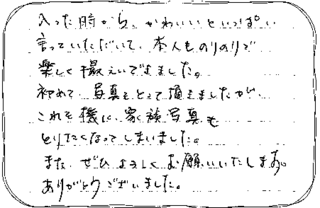 入った時から、かわいいといっぱい
言っていただいて、本人ものりのりで
楽しく撮えいできました。
初めて、写真をとって頂きましたが、
これを機に、家族写真も
とりたくなってしまいました。
また、ぜひ よろしくお願いいたします。
ありがとうございました。